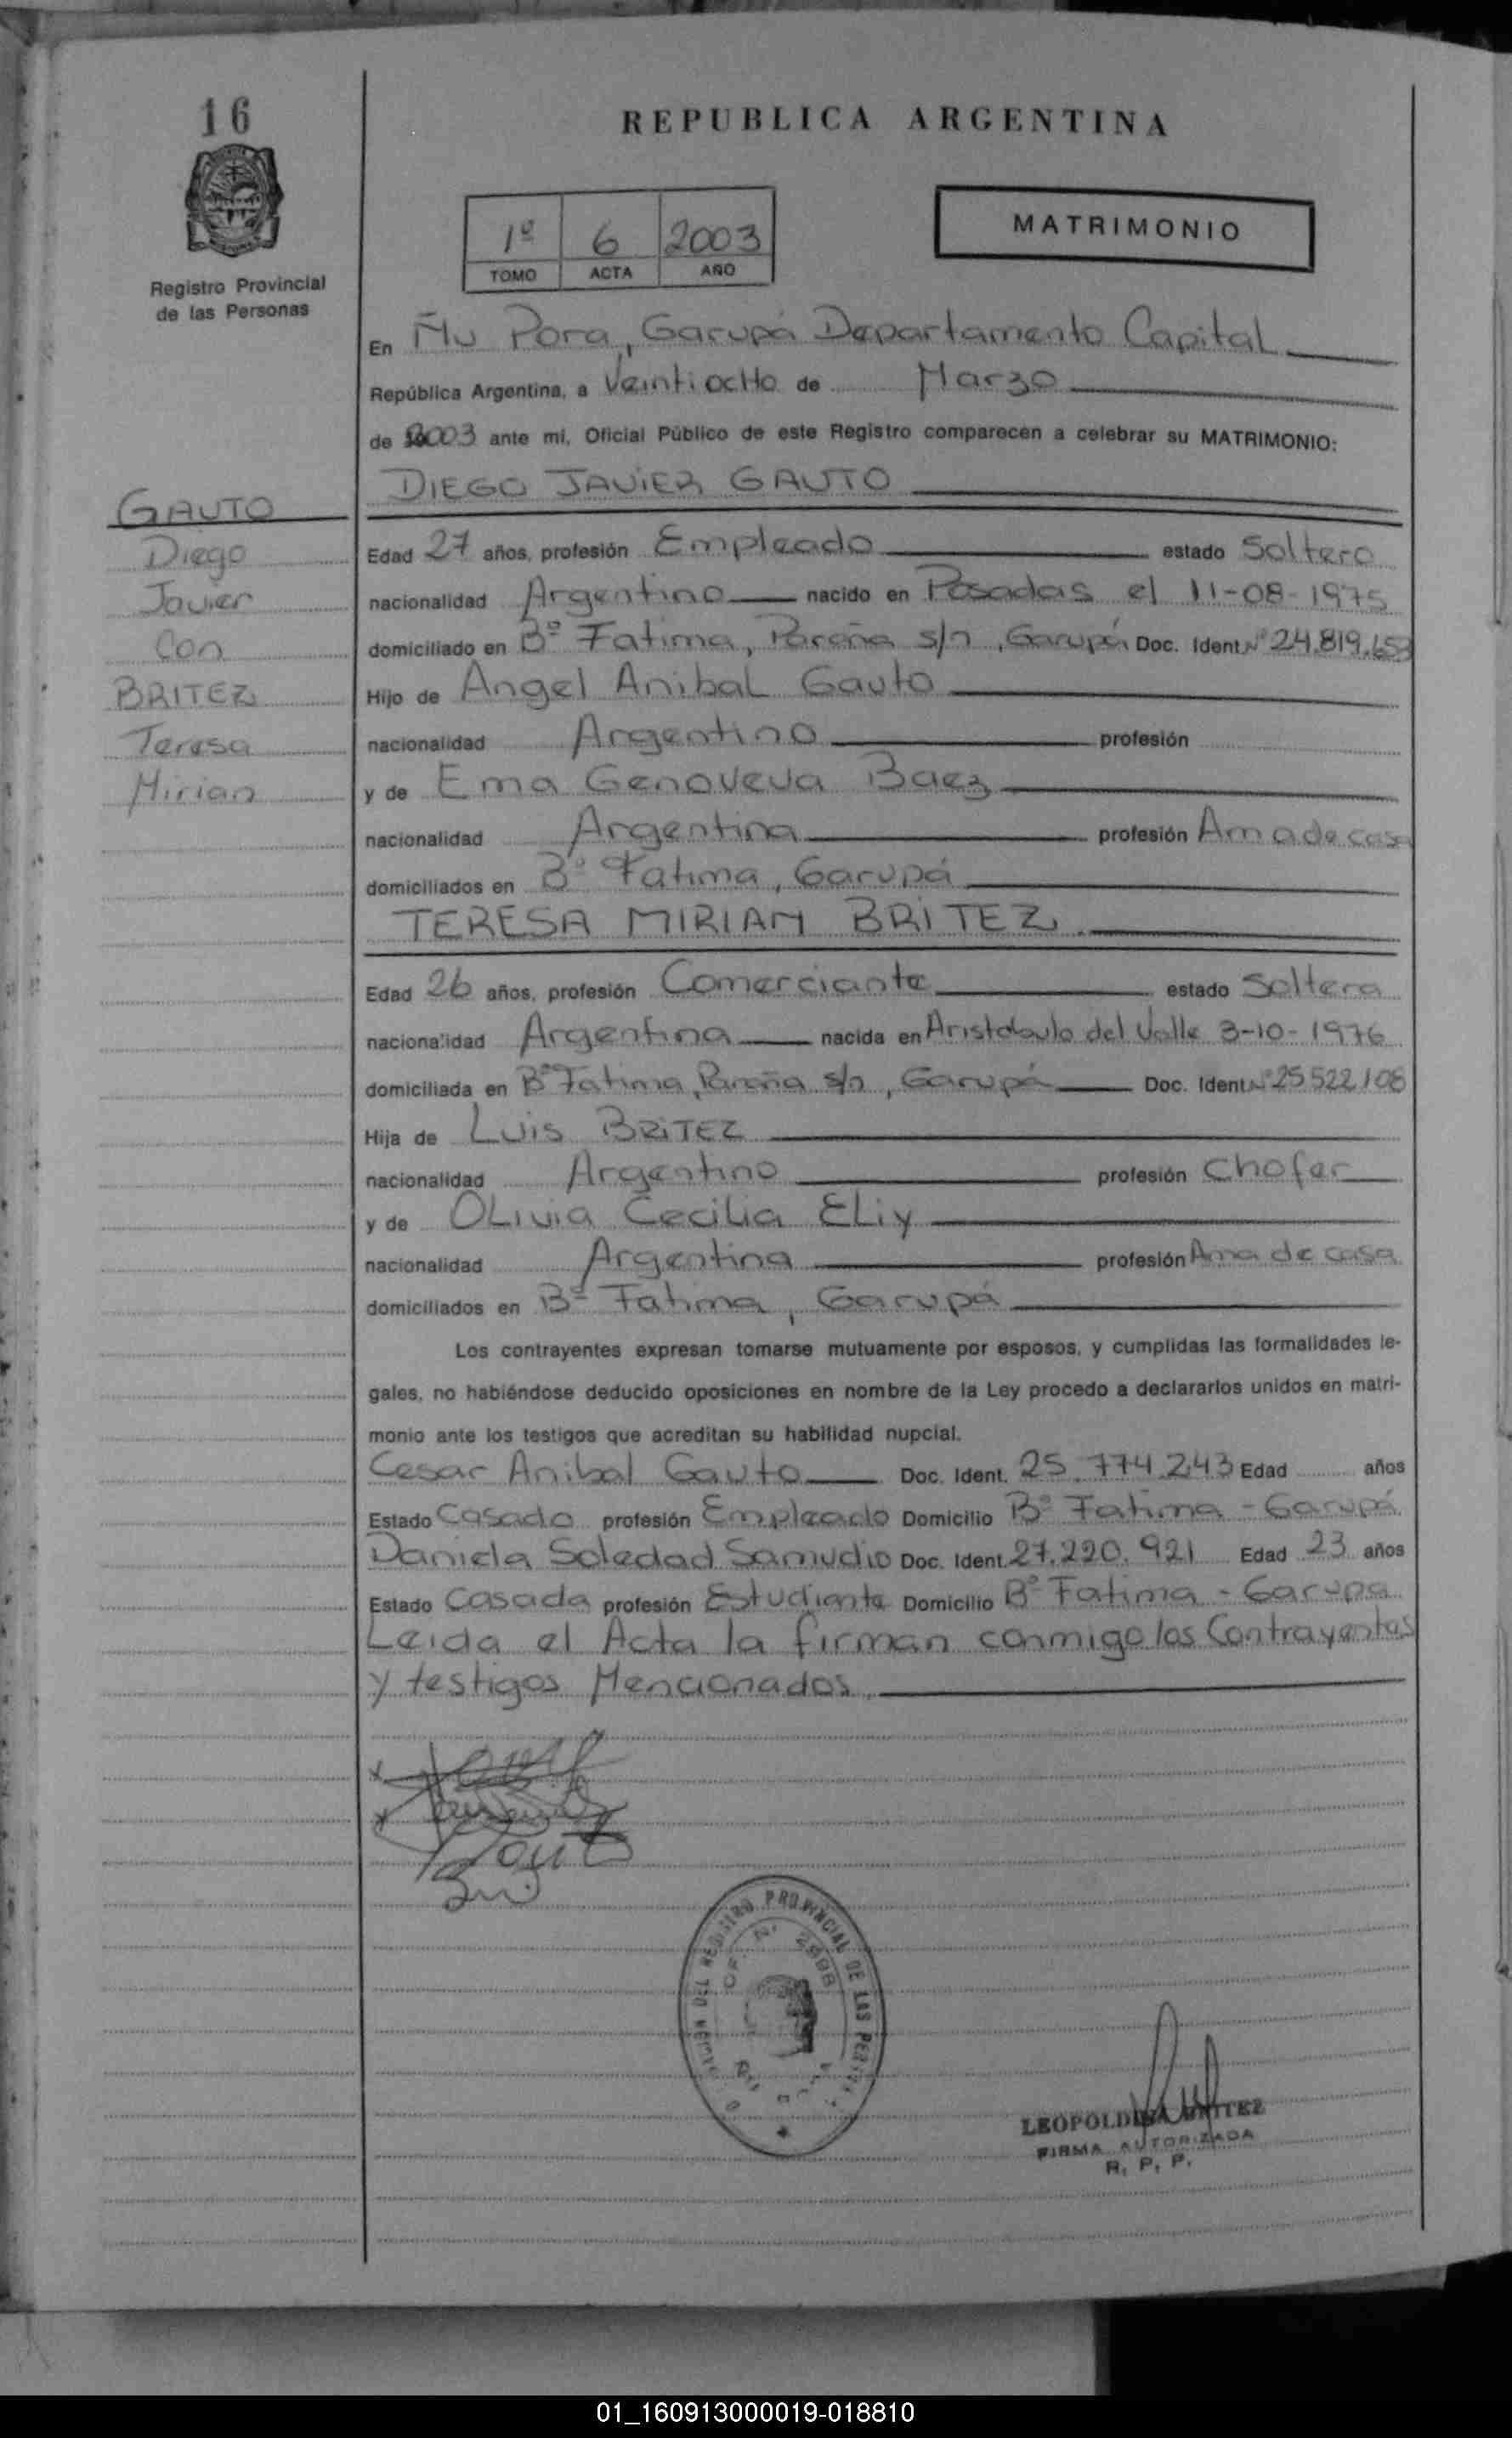 16
REPUBLICA ARGENTINA
1º 6 2003
TOMO ACTA AÑO
MATRIMONIO
Registro Provincial
de las Personas
En Ñu Pora, Garupá Departamento Capital
República Argentina, a Veintiocho de Marzo
de 2003 ante mi, Oficial Público de este Registro comparecen a celebrar su MATRIMONIO:
DIEGO JAVIER GAUTO
GAUTO
Diego
Javier
Con
BRITEZ
Teresa
Mirian
Edad 27 años, profesión Empleado estado Soltero
nacionalidad Argentino nacido en Posadas el 11-08-1975
domiciliado en Bº Fatima, s/n, Garupá Doc. Ident. Nº 24.819.653
Hijo de Angel Anibal Gauto
nacionalidad Argentino profesión
y de Ema Genoveva Baez
nacionalidad Argentina profesión Ama de casa
domiciliados en Bº Fatima, Garupá
TERESA MIRIAM BRITEZ
Edad 26 años, profesión Comerciante estado Soltera
nacionalidad Argentina nacida en Aristobulo del Valle 3-10-1976
domiciliada en Bº Fatima, s/n, Garupá Doc. Ident. Nº 25522108
Hija de Luis BRITEZ
nacionalidad Argentino profesión Chofer
y de OLivia Cecilia ELiy
nacionalidad Argentina profesión Ama de casa
domiciliados en Bº Fatima, Garupá
Los contrayentes expresan tomarse mutuamente por esposos, y cumplidas las formalidades le-
gales, no habiéndose deducido oposiciones en nombre de la Ley procedo a declararlos unidos en matri-
monio ante los testigos que acreditan su habilidad nupcial.
Cesar Anibal Gauto Doc. Ident. 25.774.243 Edad años
Estado Casado profesión Empleado Domicilio Bº Fatima - Garupá
Daniela Soledad Samudio Doc. Ident. 27.220.921 Edad 23 años
Estado Casada profesión Estudiante Domicilio Bº Fatima - Garupa
Leida el Acta la firman conmigo los Contrayentes
y testigos Mencionados.
REGISTRO PROVINCIAL DE LAS
OF. Nº 2998
LEOPOLDINA
FIRMA AUTORIZADA
R. P. P.
01_160913000019-018810